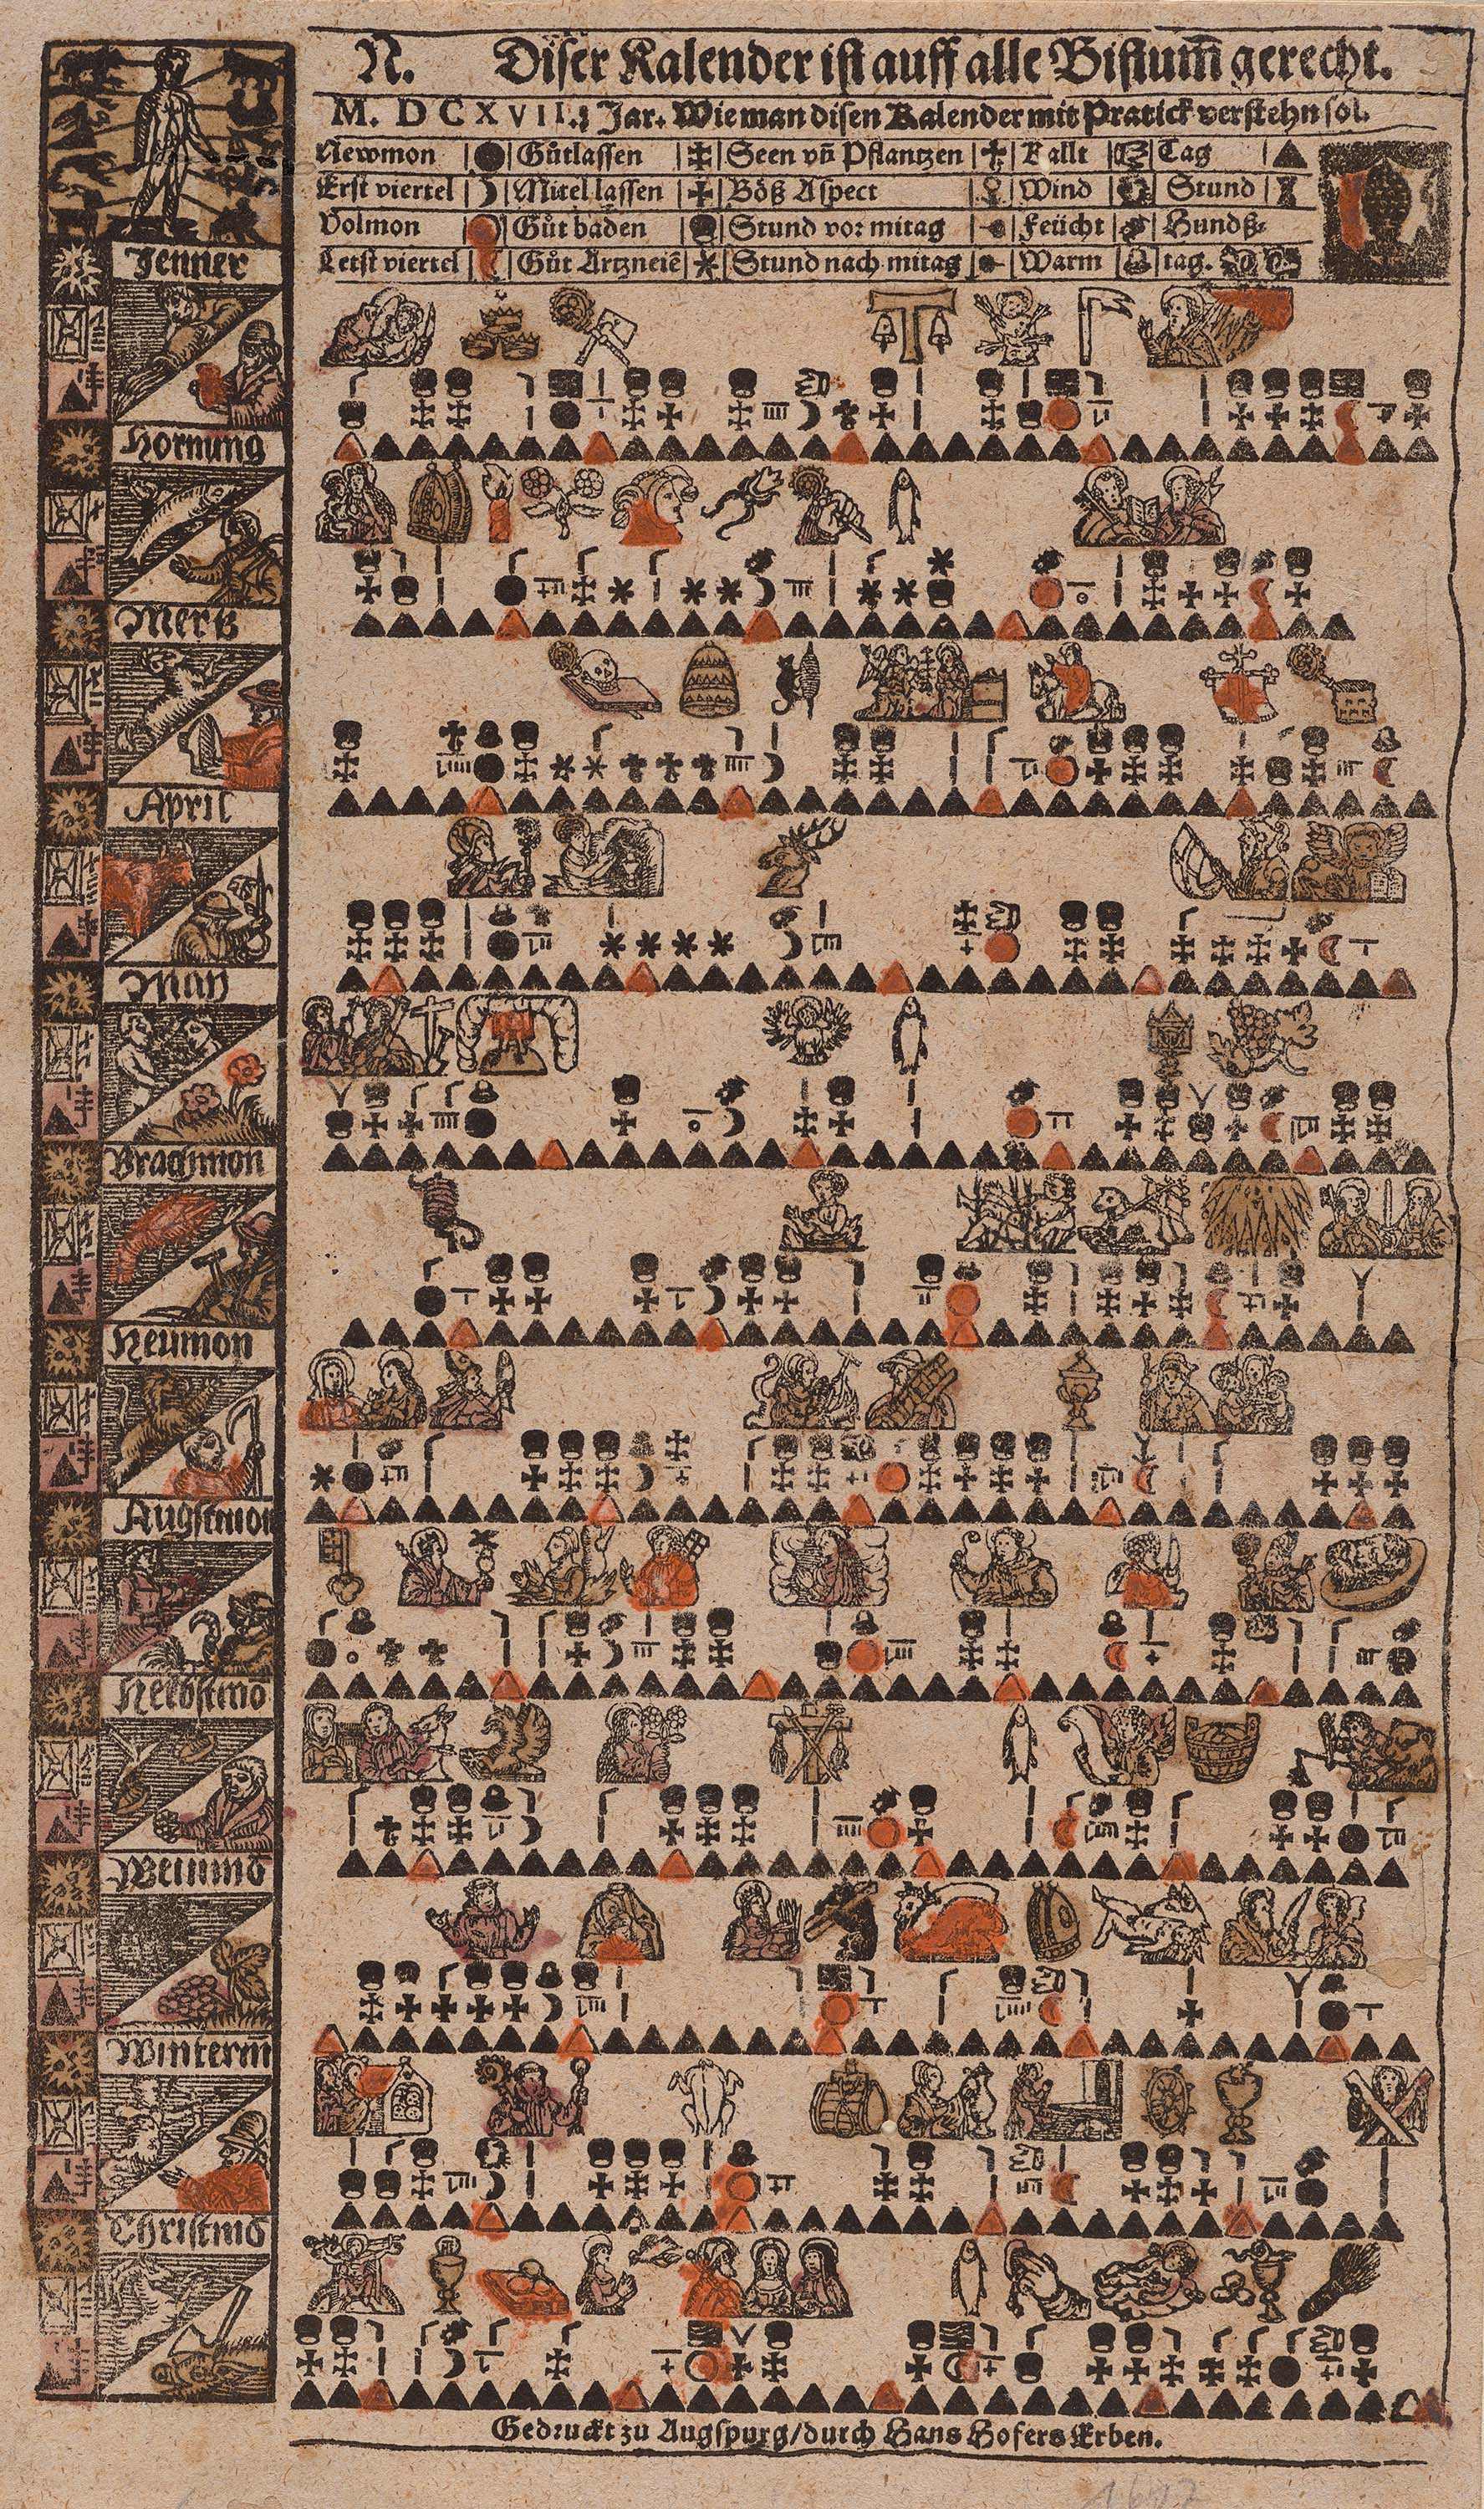 N. Diser Kalender ist auff alle Bistum̄ gerecht.
M. D C X V I I. Jar. Wie man disen Kalender mit Pratick verstehn sol.
Newmon Gůtlassen Seen vn̄ Pflantzen Kallt Tag
Erst viertel Mitel lassen Böß Aspect Wind Stund
Volmon Gůt baden Stund vor mitag Feücht Hundß-
Letst viertel Gůt Artzneiē Stund nach mitag Warm tag.
Jenner
Hornung
Mertz
April
May
Brachmon
Heumon
Augstmon
Herbstmō
Weinmō
Winterm̄
Christmō
Gedruckt zu Augspurg/durch Hans Hofers Erben.
1617